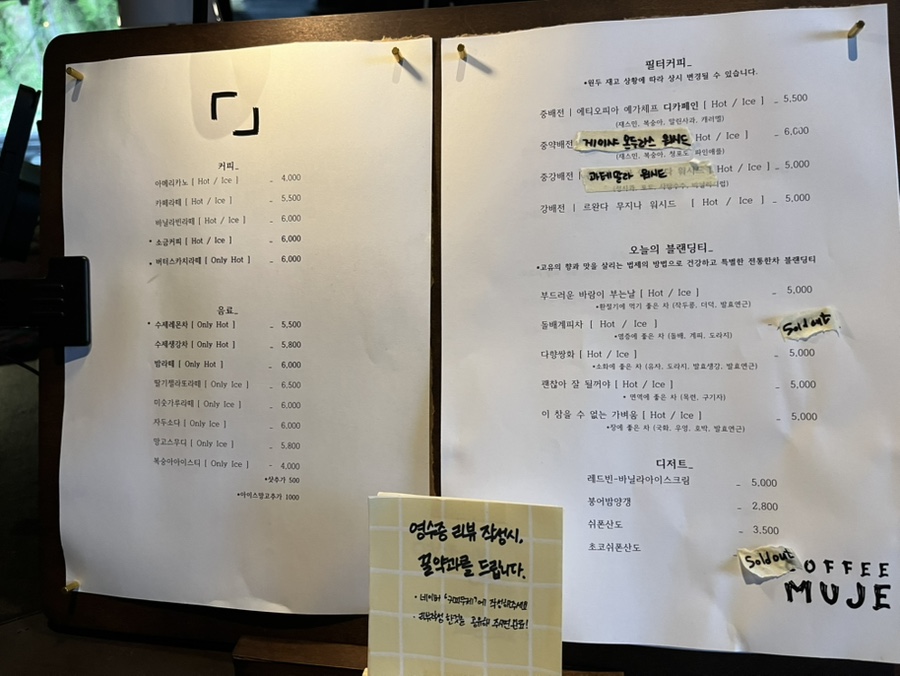 커피_
아메리카노 [ Hot / Ice ] - 4,000
카페라떼 [ Hot / Ice ] - 5,500
바닐라빈라떼 [ Hot / Ice ] - 6,000
• 소금커피 [ Hot / Ice ] - 6,000
• 버터스카치라떼 [ Only Hot ] - 6,000
음료_
• 수제레몬차 [ Only Hot ] - 5,500
수제생강차 [ Only Hot ] - 5,800
밤라떼 [ Only Hot ] - 6,000
딸기젤라또라떼 [ Only Ice ] - 6,500
미숫가루라떼 [ Only Ice ] - 6,000
자두소다 [ Only Ice ] - 6,000
망고스무디 [ Only Ice ] - 5,800
복숭아아이스티 [ Only Ice ] - 4,000
•샷추가 500
•아이스망고추가 1000
필터커피_
•원두 재고 상황에 따라 상시 변경될 수 있습니다.
중배전 | 에티오피아 예가체프 디카페인 [ Hot / Ice ] - 5,500
(재스민, 복숭아, 말린사과, 캐러멜)
중약배전 게이샤 온두라스 워시드 Hot / Ice ] - 6,000
(재스민, 복숭아, 청포도, 파인애플)
중강배전 | 과테말라 워시드 [ Hot / Ice ] - 5,000
강배전 | 르완다 무지나 워시드 [ Hot / Ice ] - 5,000
오늘의 블랜딩티_
•고유의 향과 맛을 살리는 법제의 방법으로 건강하고 특별한 전통한차 블랜딩티
부드러운 바람이 부는날 [ Hot / Ice ] - 5,000
•환절기에 먹기 좋은 차 (작두콩, 더덕, 발효연근)
돌배계피차 [ Hot / Ice ] Sold out
•염증에 좋은 차 (돌배, 계피, 도라지)
다향쌍화 [ Hot / Ice ] - 5,000
•소화에 좋은 차 (유자, 도라지, 발효생강, 발효연근)
괜찮아 잘 될꺼야 [ Hot / Ice ] - 5,000
• 면역에 좋은 차 (목련, 구기자)
이 참을 수 없는 가벼움 [ Hot / Ice ] - 5,000
•장에 좋은 차 (국화, 우엉, 호박, 발효연근)
디저트_
레드빈-바닐라아이스크림 - 5,000
붕어밤양갱 - 2,800
쉬폰산도 - 3,500
초코쉬폰산도 Sold out
COFFEE
MUJE
영수증 리뷰 작성시,
꿀약과를 드립니다.
• 네이버 '구미무제'에 작성해주세요